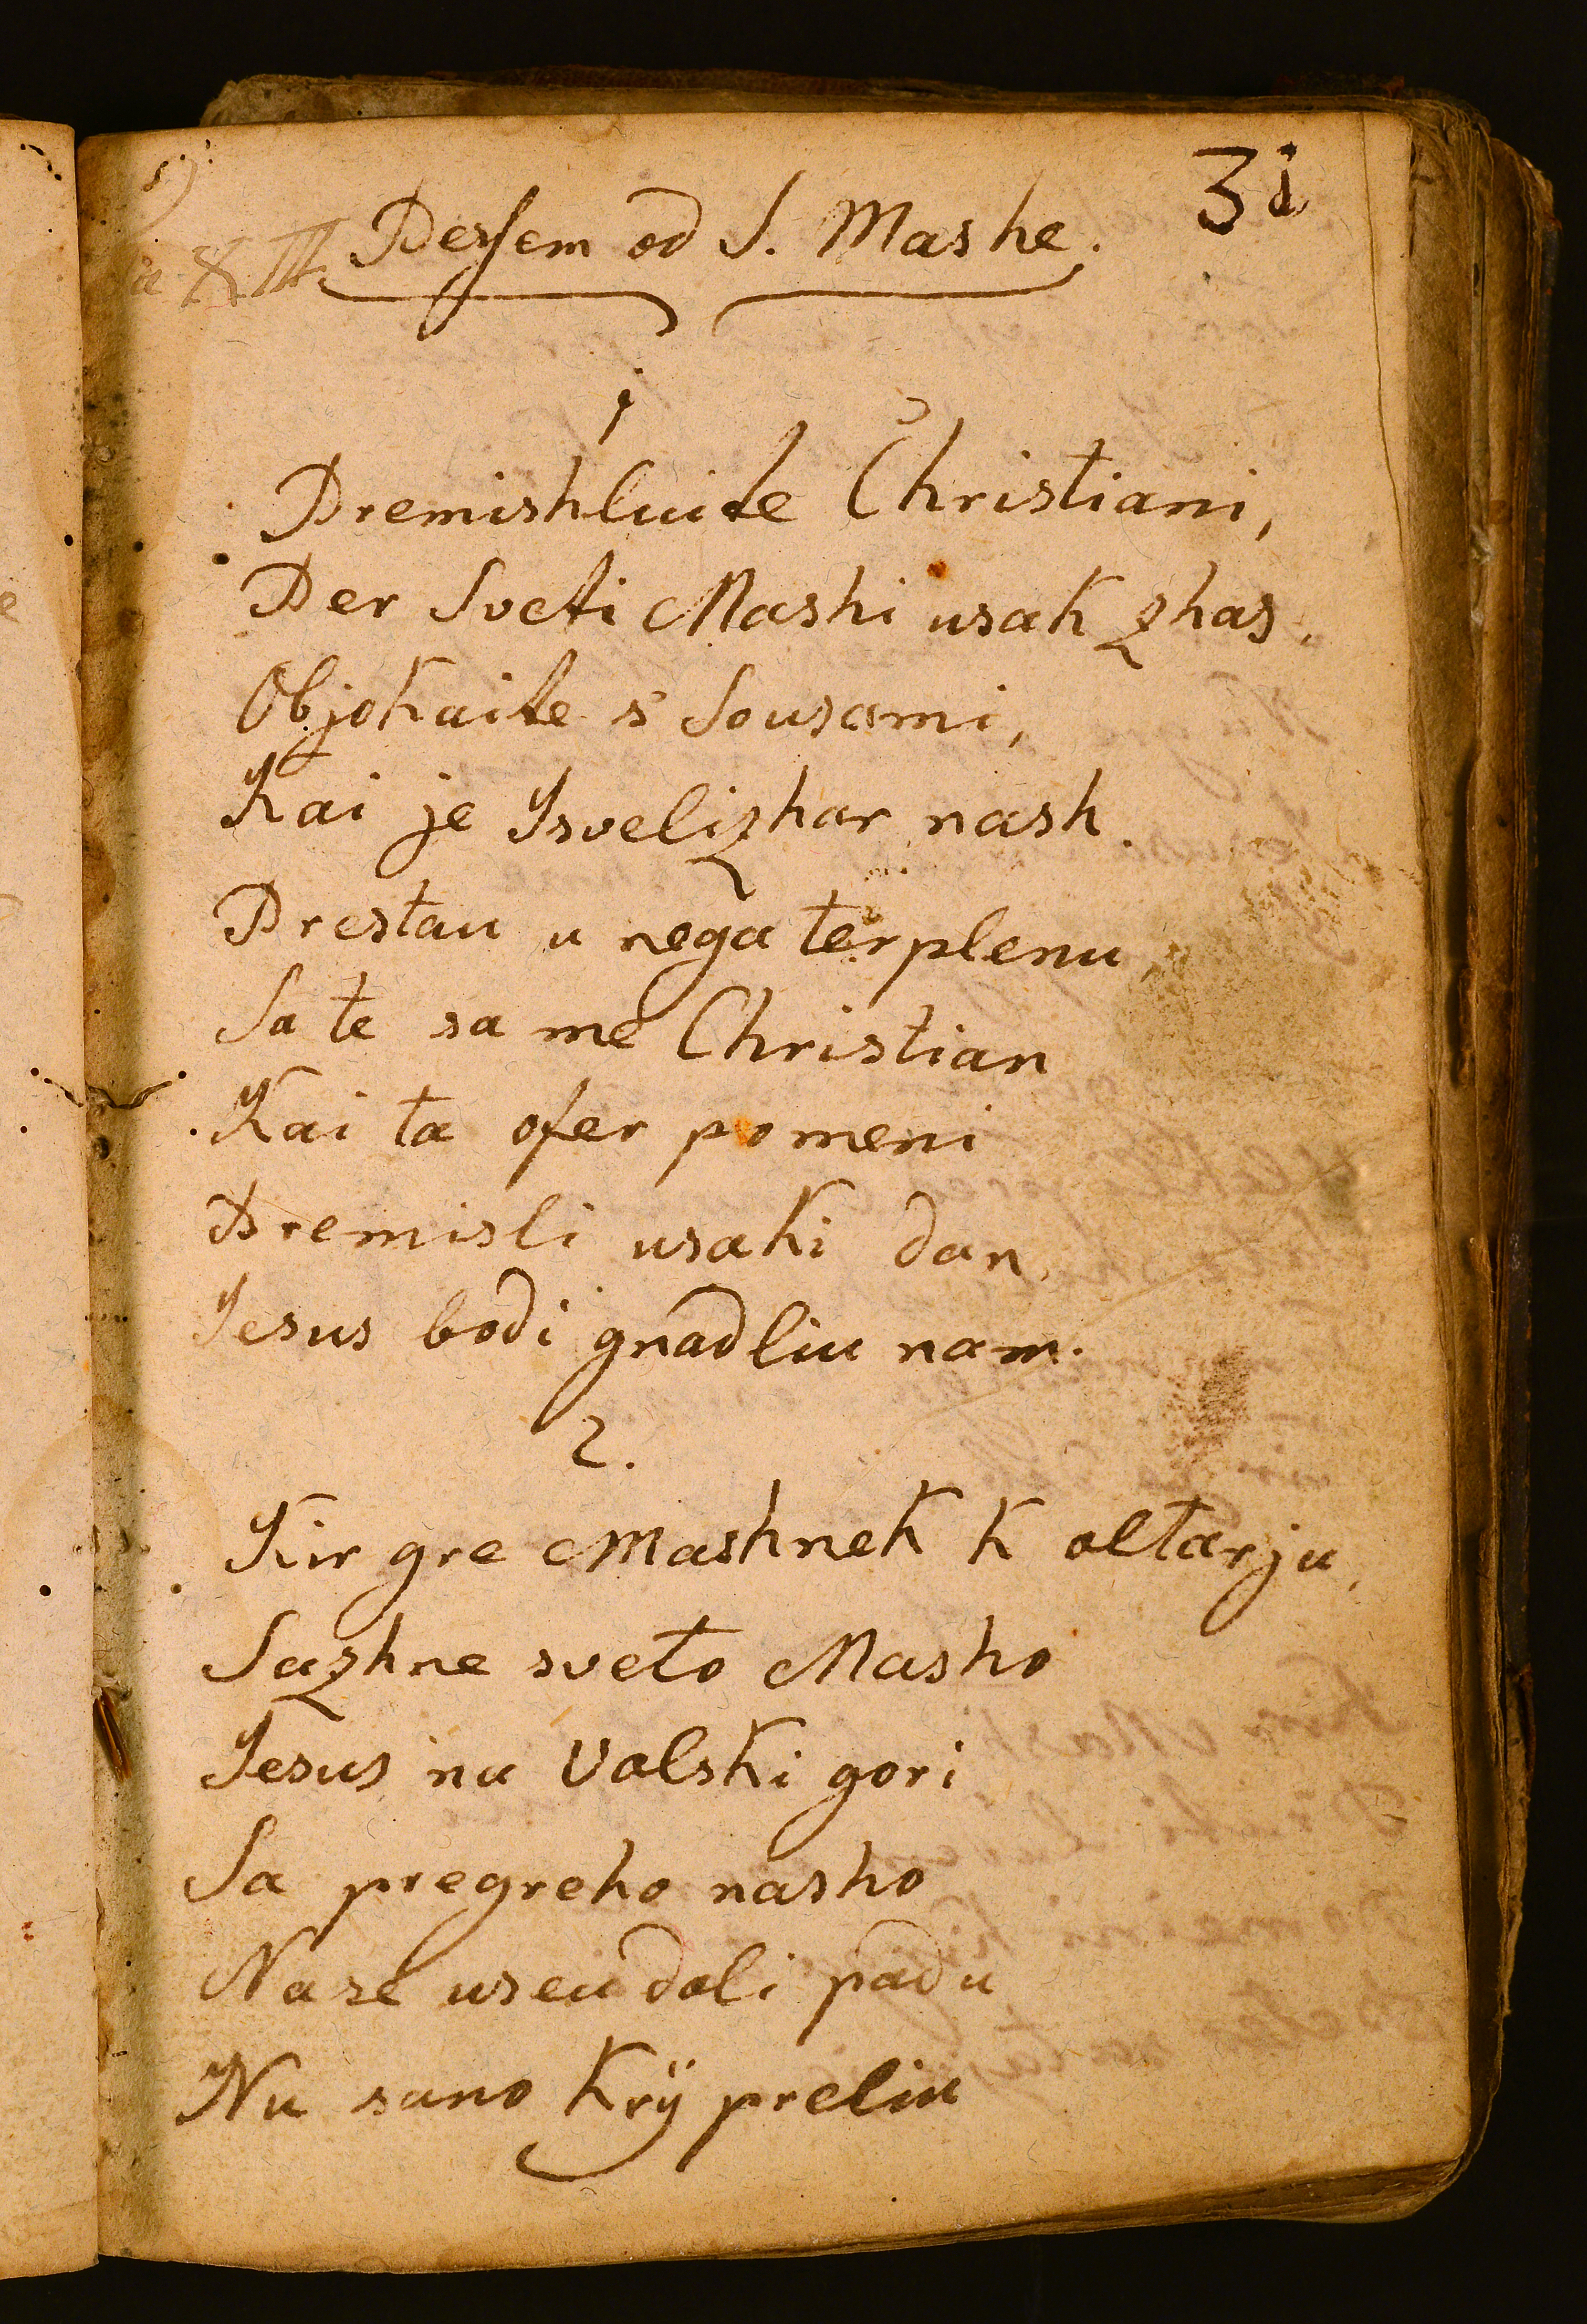 31
Pesſem od S. Mashe.
1
Premishluite Christiani,
Per Sveti Mashi usak zhas,
Objokaite s' Sousami,
Kai je Isvelizhar nash.
Prestau u nega terplenu,
Sa te sa me Christian
Kai ta ofer pomeni
Premisli usaki dan,
Jesus bodi gnadliu nam.
2.
Kir gre Mashnek k oltarju,
Sazhne sveto Masho
Jesus na Volski gori
Sa pregreho nasho
Na se useu doli padu
Nu suno Krÿ preliu